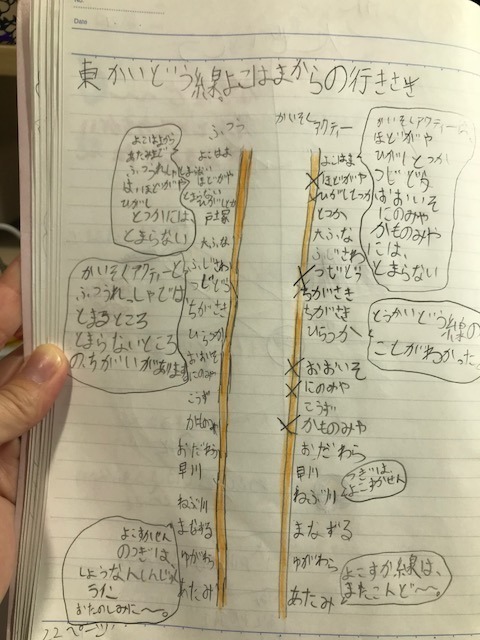 No.
Date
東かいどう線よこはまからの行きさき
ふつう
かいそくアクティー
よこはまから
あたみまで
ふつうれっしゃ
は、ほどがや
ひがし
とつかには、
とまらない
かいそくアクティーと
ふつうれっしゃでは
とまるところ
とまらないところ
のちがいがあります
よこすかせん
のつぎは、
しょうなんしんじゅく
らいん
おたのしみに〜。
よこはま
とまらない
ほどがや
とまらない
ひがしとつか
戸土家
大ふな
ふじさわ
つじどう
ちがさき
ひらつか
おおいそ
にのみや
こうず
かものみや
おだわら
早川
ねぶ川
まなずる
ゆがわら
あたみ
よこはま
ほどがや
ひがしとつか
とつか
大ふな
ふじさわ
つじどう
ちがさき
ちがさき
ひらつか
おおいそ
にのみや
こうず
かものみや
おだわら
早川
ねぶ川
まなずる
ゆがわら
あたみ
かいそくアクティーは、
ほどがや
ひがしとつか
つじどう
おおいそ
にのみや
かものみや
には、
とまらない
とうかいどう線の
ことがわかった。
つぎは、
よこすかせん
よこすか線は、
またこんど〜。
22ページ